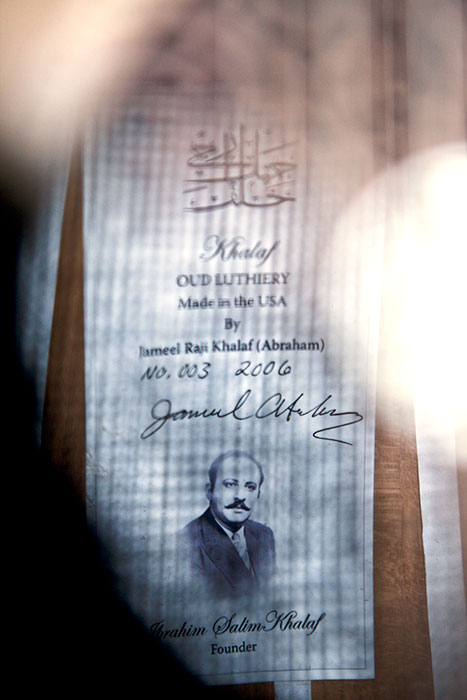 Khalaf
OUD LUTHIERY
Made in the USA
By
Jameel Raji Khalaf (Abraham)
No. 003 2006
Jameel Abraham
Ibrahim Salim Khalaf
Founder